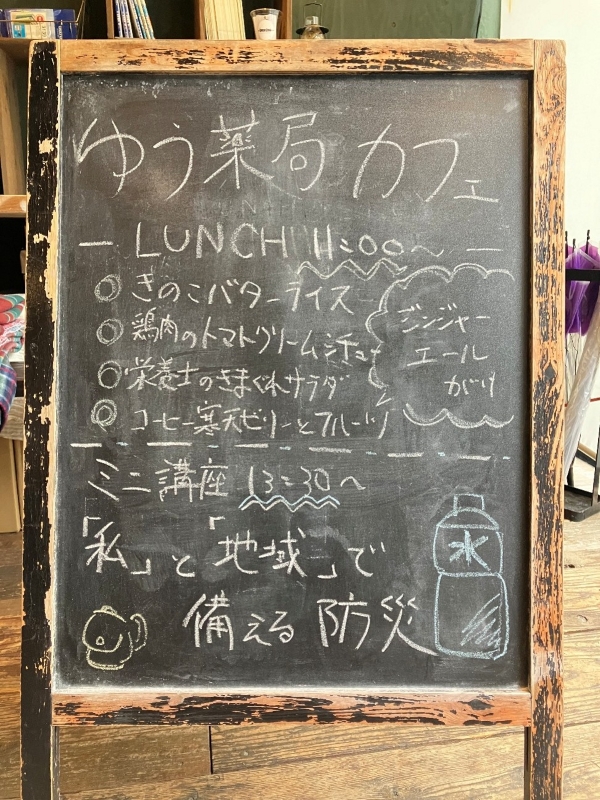 ゆう薬局 カフェ
— LUNCH 11:00〜 —
◎ きのこバターライス
◎ 鶏肉のトマトクリームシチュー
◎ 栄養士のきまぐれサラダ
◎ コーヒー寒天ゼリーとフルーツ
ジンジャー
エール
がけ
ミニ講座 13:30〜
「私」と「地域」で
備える防災
水